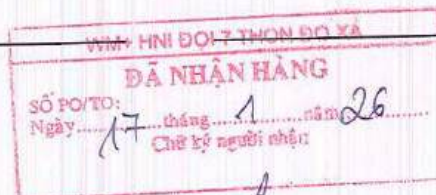 WM+ HNI ĐỘI 7 THÔN ĐỌ XÁ
ĐÃ NHẬN HÀNG
SỐ PO/TO:
Ngày 17 tháng 1 năm 26
Chữ ký người nhận: